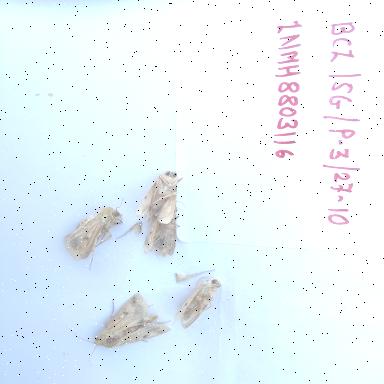 BCZ/SG/P.3/27-10
1NNH8803116